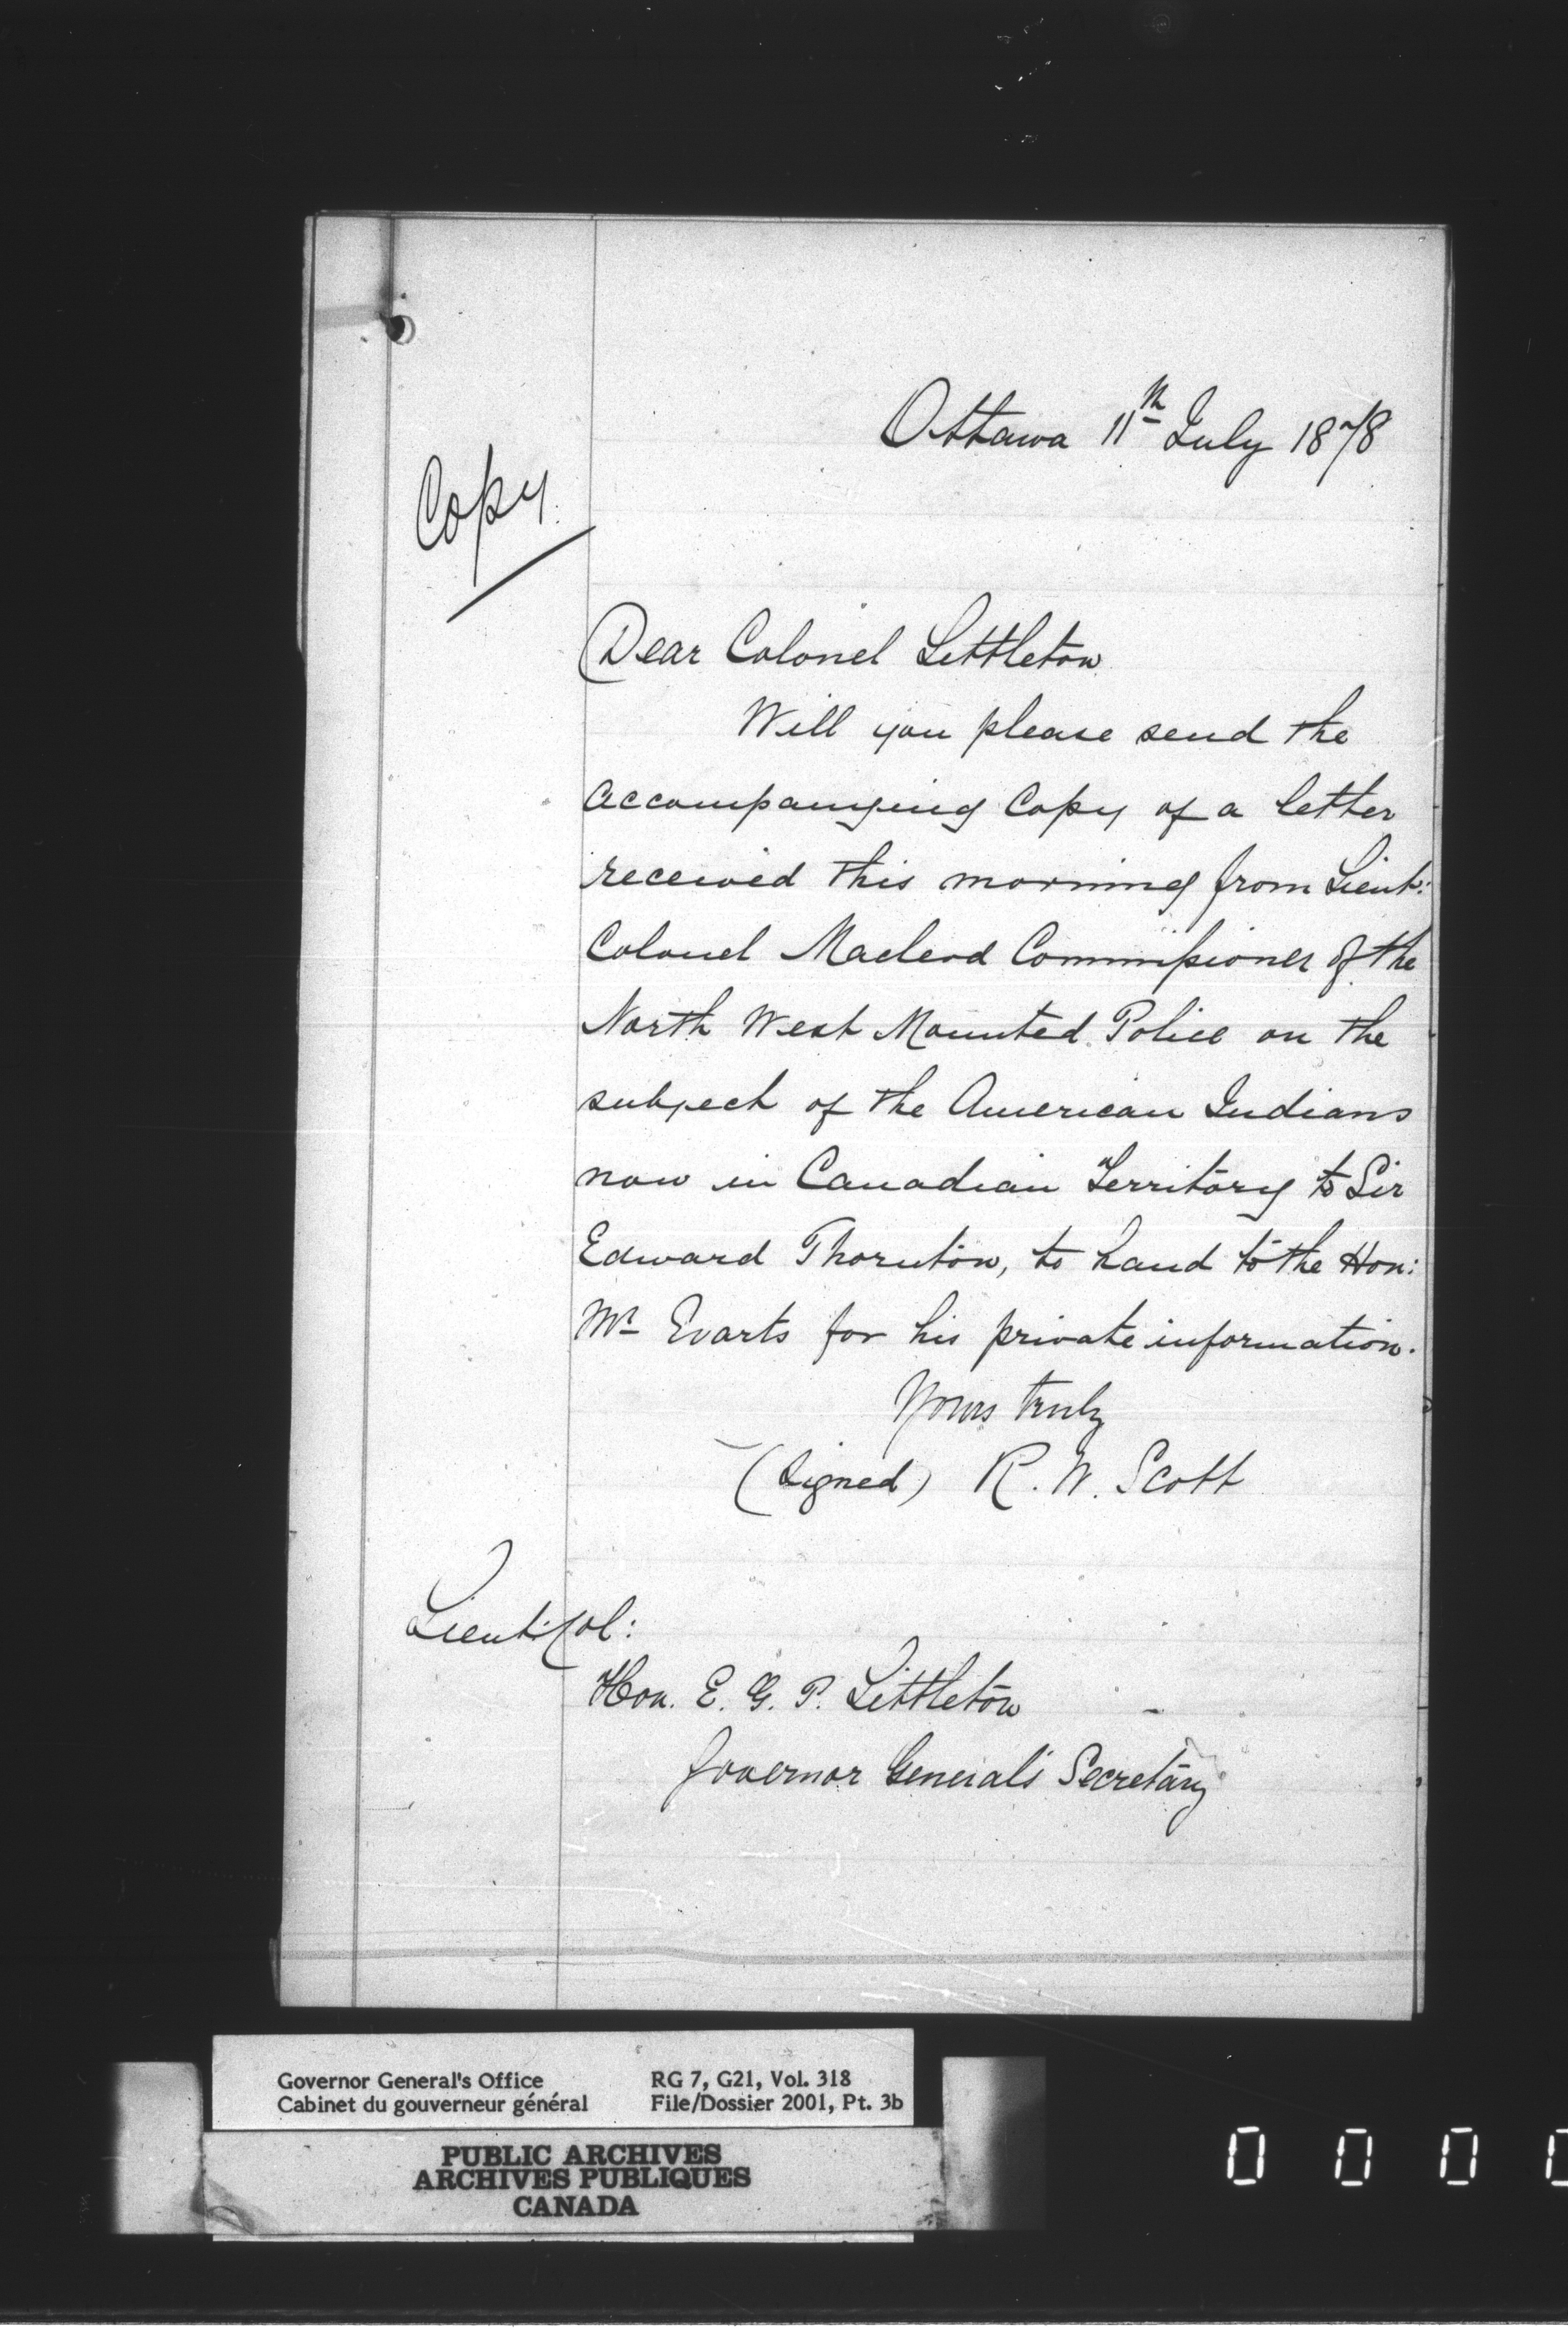 Ottawa 11th July 1878
Copy.
Dear Colonel Littleton
Will you please send the
accompanying Copy of a letter
received this morning from Lieut:
Colonel Macleod Commissioner of the
North West Mounted Police on the
subject of the American Indians
now in Canadian Territory to Sir
Edward Thornton, to hand to the Hon:
Mr Evarts for his private information.
Yours truly
(Signed) R. W. Scott
Lieut: Col:
Hon. E. G. P. Littleton
Governor General's Secretary
Governor General's Office RG 7, G21, Vol. 318
Cabinet du gouverneur général File/Dossier 2001, Pt. 3b
PUBLIC ARCHIVES
ARCHIVES PUBLIQUES
CANADA
0 0 0